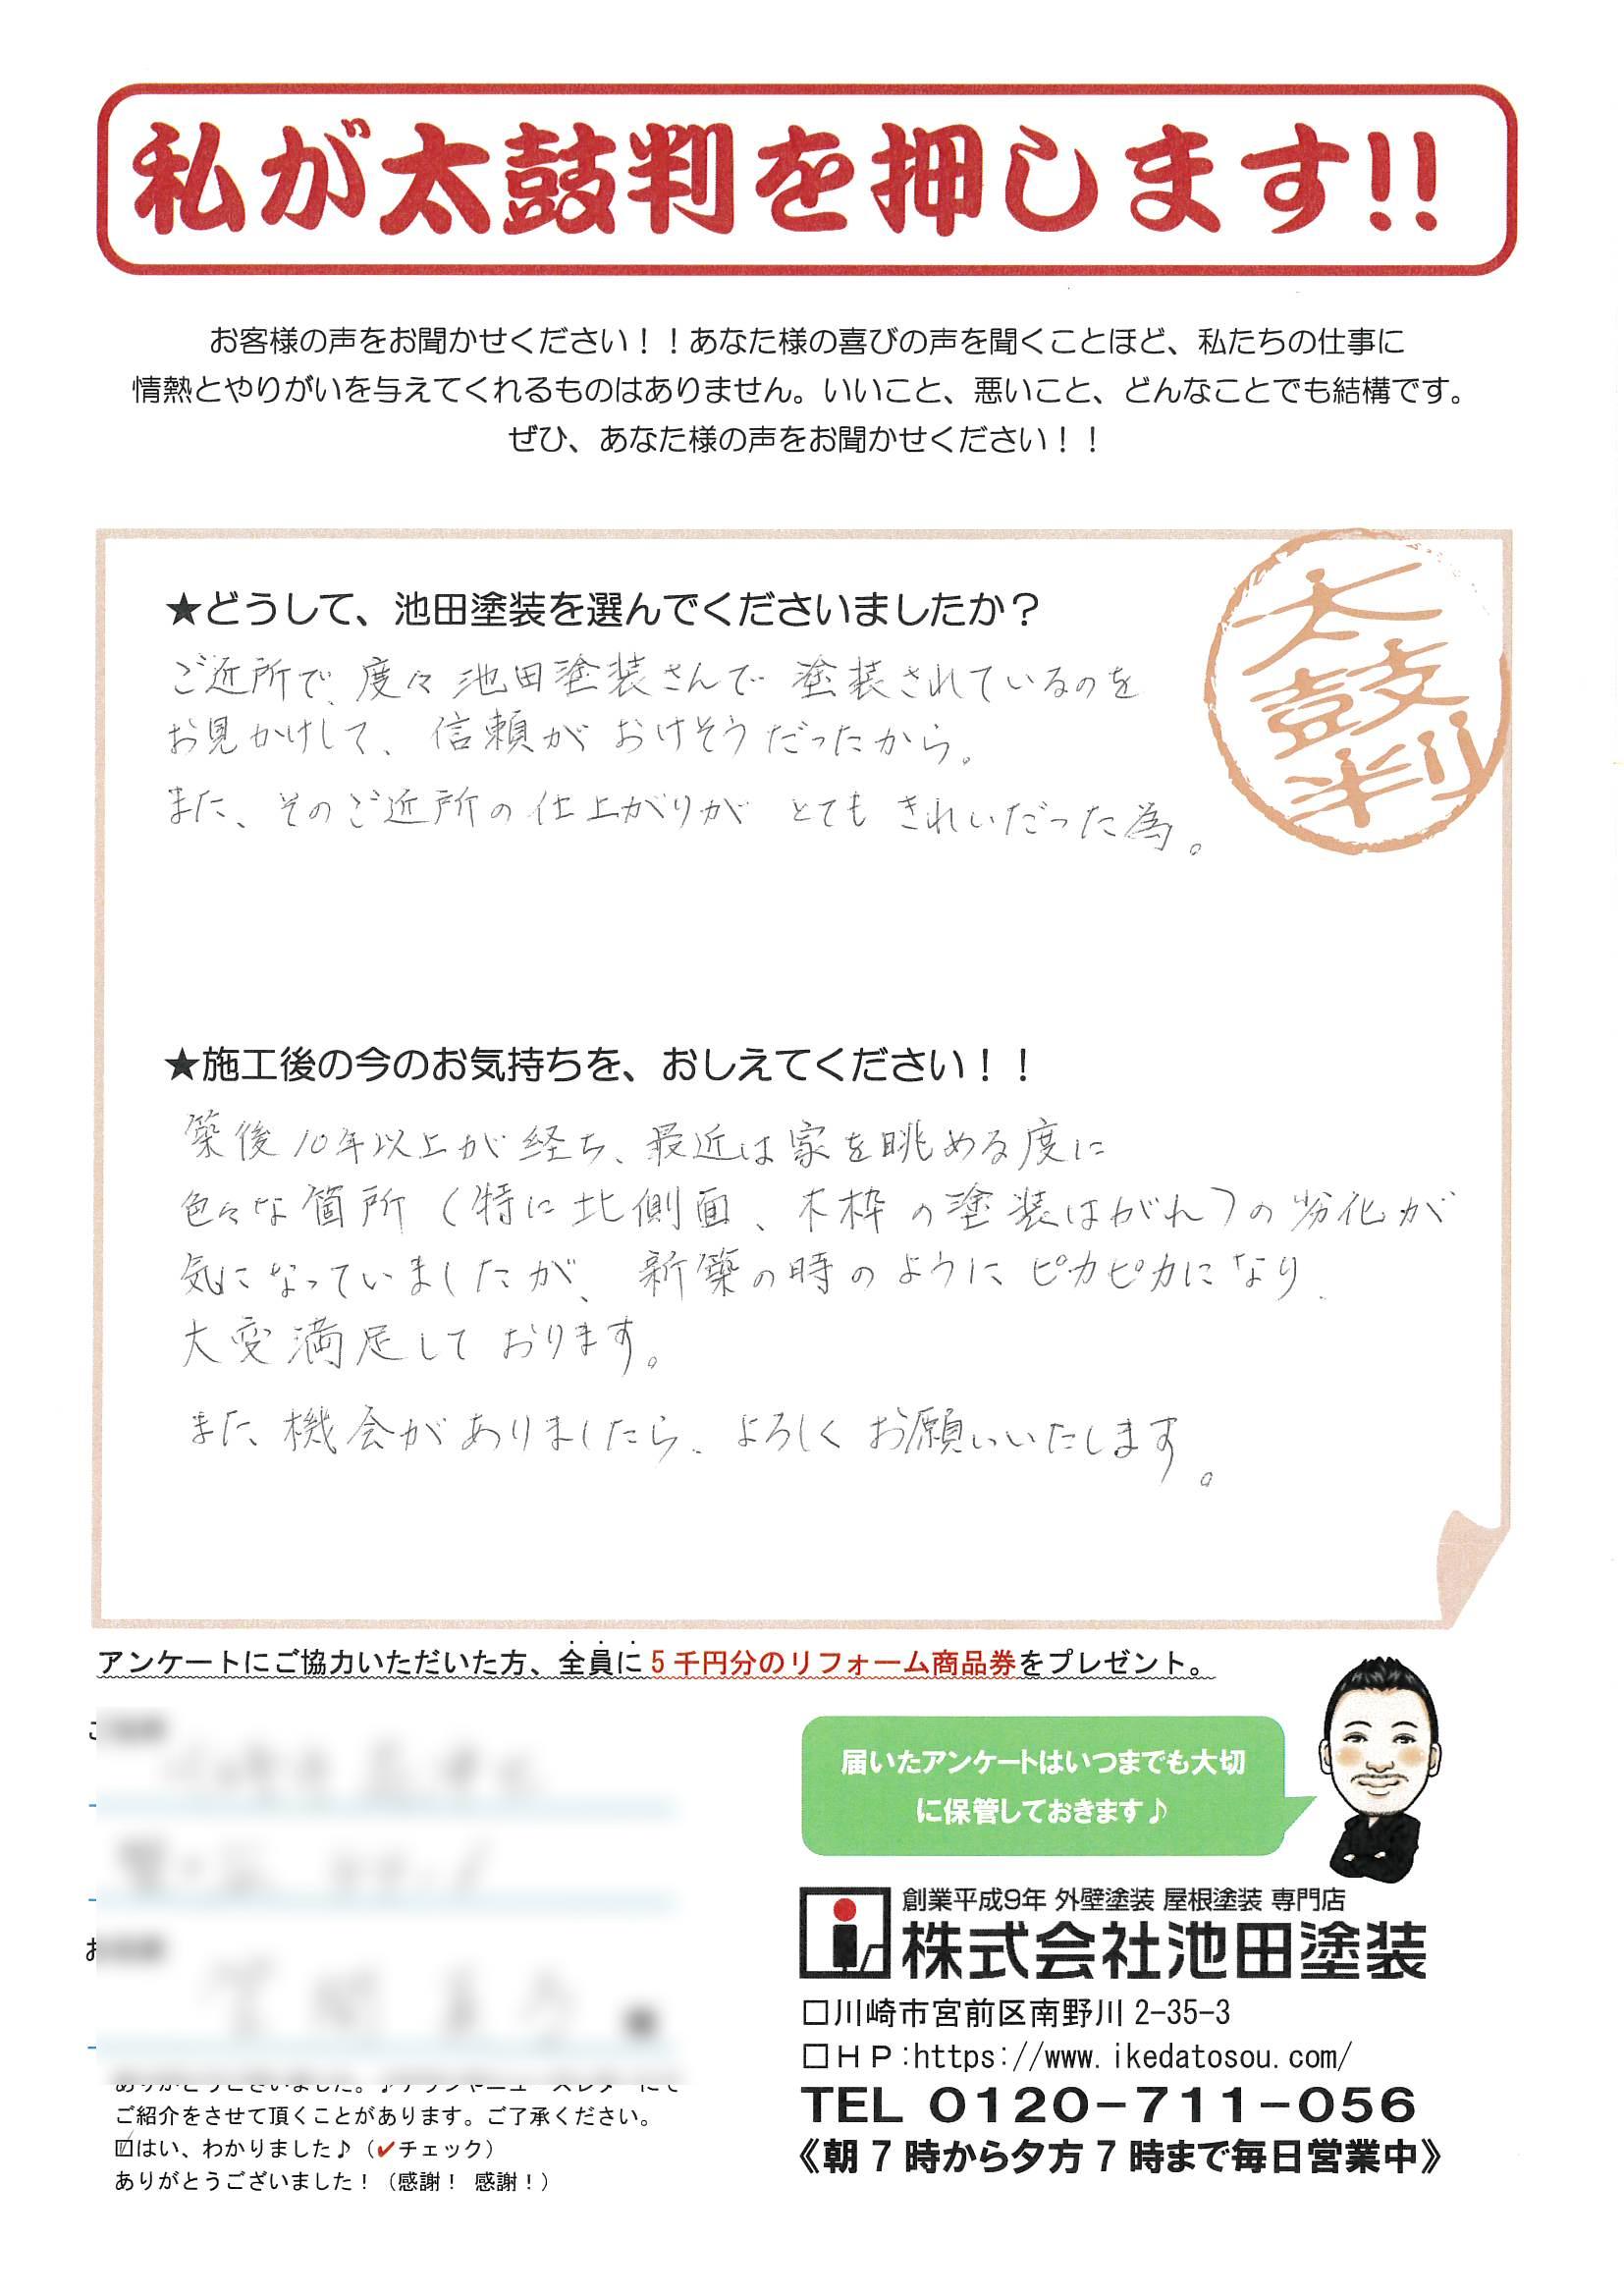 私が太鼓判を押します!!
お客様の声をお聞かせください！！あなた様の喜びの声を聞くことほど、私たちの仕事に
情熱とやりがいを与えてくれるものはありません。いいこと、悪いこと、どんなことでも結構です。
ぜひ、あなた様の声をお聞かせください！！
太鼓判
★どうして、池田塗装を選んでくださいましたか？
ご近所で、度々池田塗装さんで塗装されているのを
お見かけして、信頼がおけそうだったから。
また、そのご近所の仕上がりがとてもきれいだった為。
★施工後の今のお気持ちを、おしえてください！！
築後10年以上が経ち、最近は家を眺める度に
色々な箇所（特に北側面、木枠の塗装はがれ）の劣化が
気になっていましたが、新築の時のようにピカピカになり、
大変満足しております。
また機会がありましたら、よろしくお願いいたします。
アンケートにご協力いただいた方、全員に5千円分のリフォーム商品券をプレゼント。
届いたアンケートはいつまでも大切
に保管しておきます♪
創業平成9年 外壁塗装 屋根塗装 専門店
株式会社池田塗装
□川崎市宮前区南野川2-35-3
□ＨＰ:https://www.ikedatosou.com/
TEL 0120-711-056
《朝7時から夕方7時まで毎日営業中》
ありがとうございました。♪チラシやニュースレターにて
ご紹介をさせて頂くことがあります。ご了承ください。
☑はい、わかりました♪（✔チェック）
ありがとうございました！（感謝！ 感謝！）